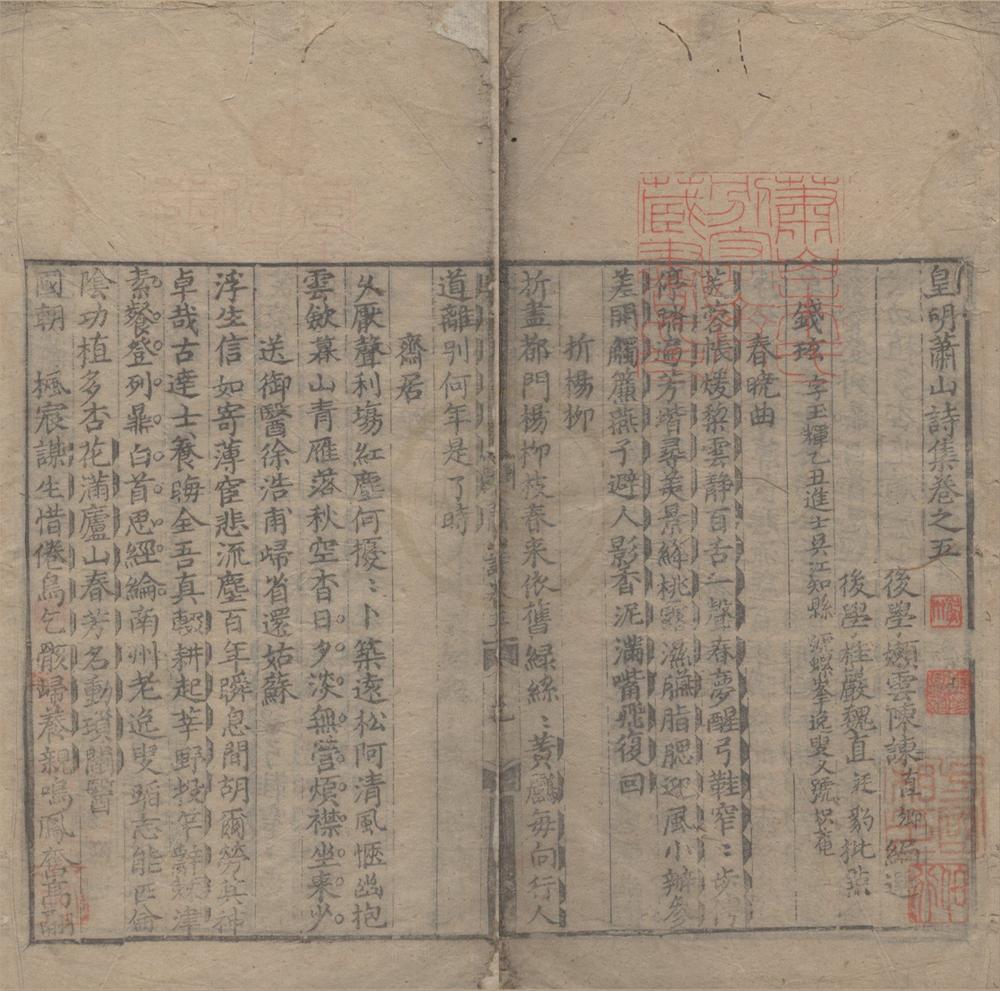 皇明蕭山詩集卷之五
後學嬾雲陳諫直卿編選
後學桂巖魏直廷豹批點
錢玹字玉輝乙丑進士吳江知縣號螺峯逸叟又號
春曉曲
芙蓉帳煖梨雲靜百舌一聲春夢醒弓鞋窄〻步
停踏遍芳堦尋美景絳桃露濕臙脂腮迎風小辦參
差開觸簾燕子避人影香泥滿嘴飛復回
折楊柳
折盡都門楊柳枝春來依舊綠絲〻黃鸝每向行人
道離別何年是了時
齋居
久厭聲利塲紅塵何擾〻卜築遠松阿清風愜幽抱
雲歛暮山青雁落秋空杳日夕淡無營煩襟坐來少
送御醫徐浩甫歸省還姑蘇
浮生信如寄薄宦悲流塵百年瞬息間胡爾勞其神
卓哉古達士養晦全吾真轂耕起莘野投竿辭渭津
素餐登列鼎白首思經綸南州老逸叟蹈志能匹倫
陰功植多杏花滿廬山春芳名動瑣闥醫
國朝 楓宸謀生惜倦鳥乞骸歸養親鳴鳳奮高
蕭山
藏書